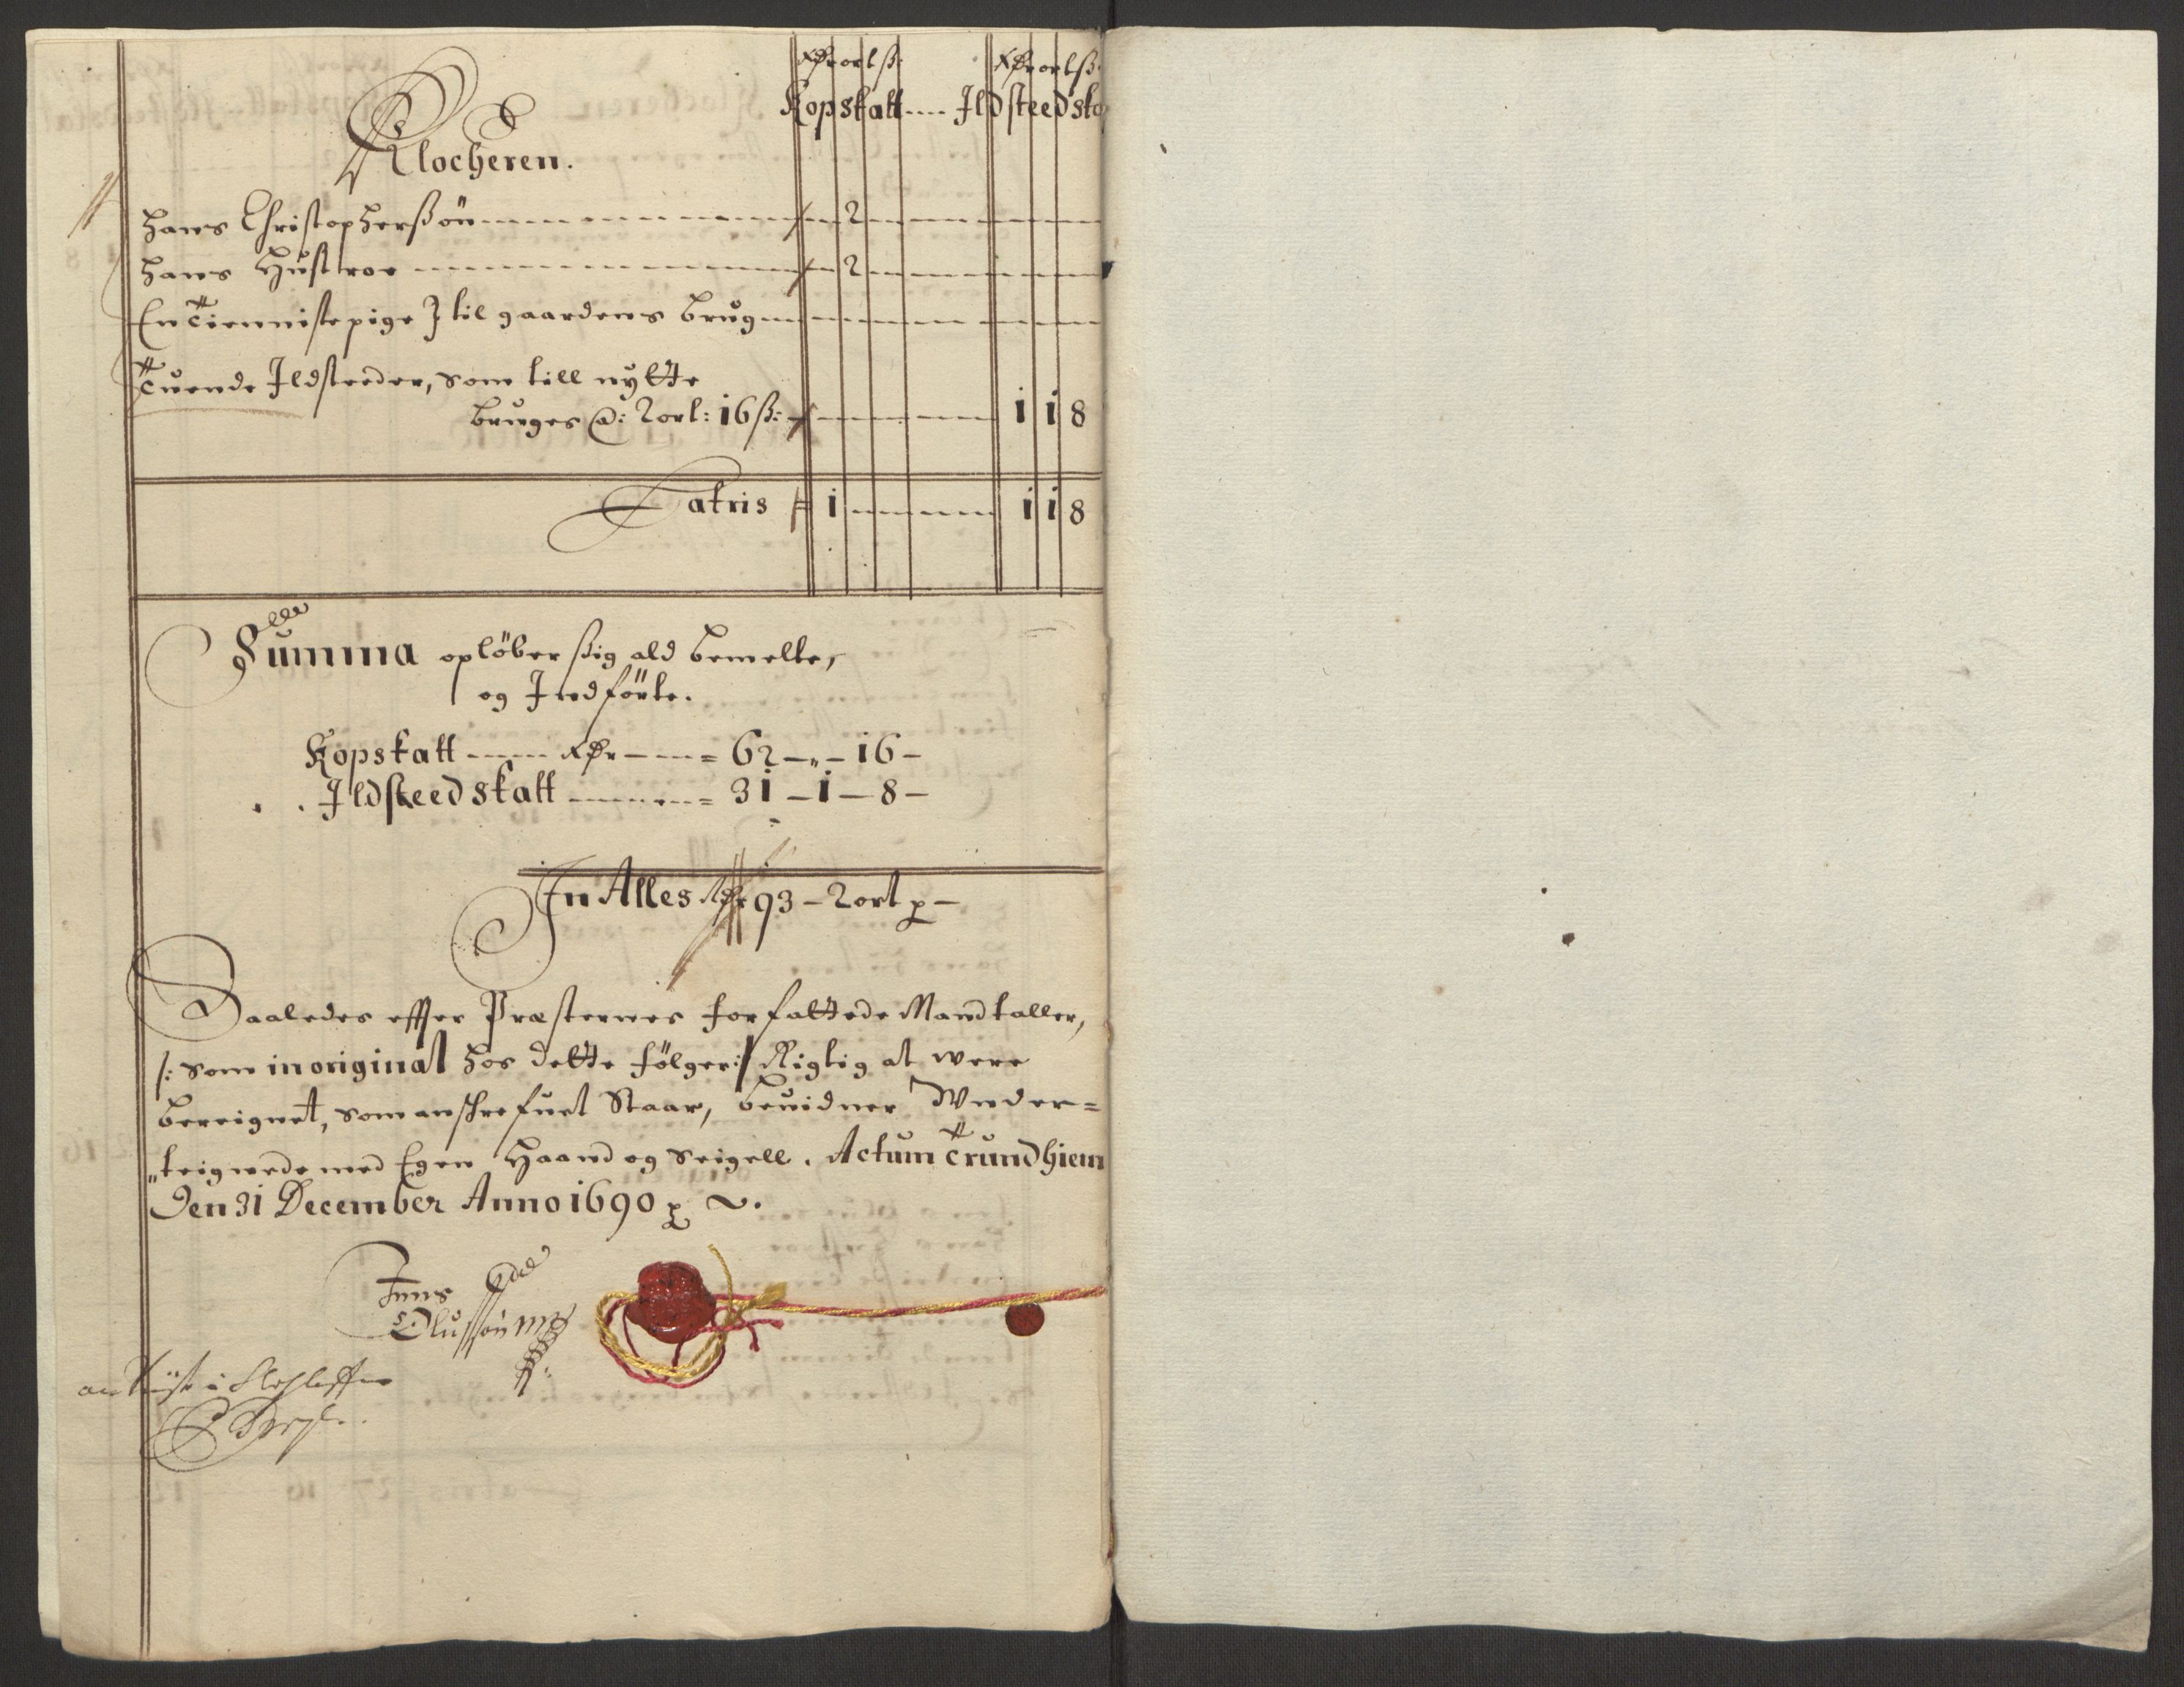 Rdr ort ß: Rdr ort ß:
Kopskatt ---- Ildsteedska
Klocheren.
Hans Christopherßøn ---- 2 ----
Hans Hustroe ---- 2 ----
En Tienniste pige J til gaardens brug ----
Tuende Ildsteeder, som till nytte
bruges @: 2 ort: 16 ß: ---- 1 1 8
Latris 1 ---- 1 1 8
Summa opløber ßig ald bemelte,
og Indførte.
Kopskatt ---- Rdr ---- = 62 - „ - 16 -
Ildsteedskatt ---- = 31 - 1 - 8 -
In Alles Rdr 93 - 2 ort
Saaledes effter Præsternes forfattede Mandtaller,
/: som in original hos dette følger :/ Rigtig at were
bereignet, som anschrefuet Staar, beuidner Wnder=
„teignede med Egen Haand og Seigell. Actum Trundhiem
Den 31 December Anno 1690
Jens
Olußøn